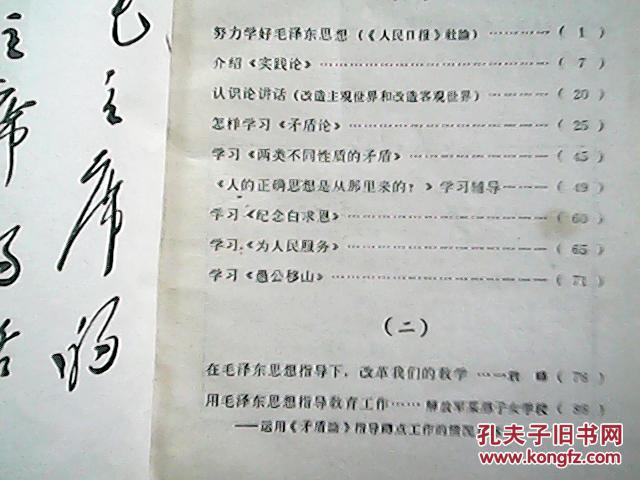 毛主席的
主席的话
努力学好毛泽东思想（《人民日报》社論）……………( 1 )
介绍《实践论》……………………………………( 7 )
认识论讲话（改造主观世界和改造客观世界）…………( 20 )
怎样学习《矛盾论》………………………………( 25 )
学习《两类不同性质的矛盾》……………………( 45 )
《人的正确思想是从那里来的？》学习辅导………( 49 )
学习《纪念白求恩》………………………………( 60 )
学习《为人民服务》………………………………( 65 )
学习《愚公移山》…………………………………( 71 )
（二）
在毛泽东思想指导下，改革我们的教学 ……一 ( 78 )
用毛泽东思想指导教育工作……解放军某部子女学校( 88 )
——运用《矛盾論》指导蹲点工作的情况
孔夫子旧书网